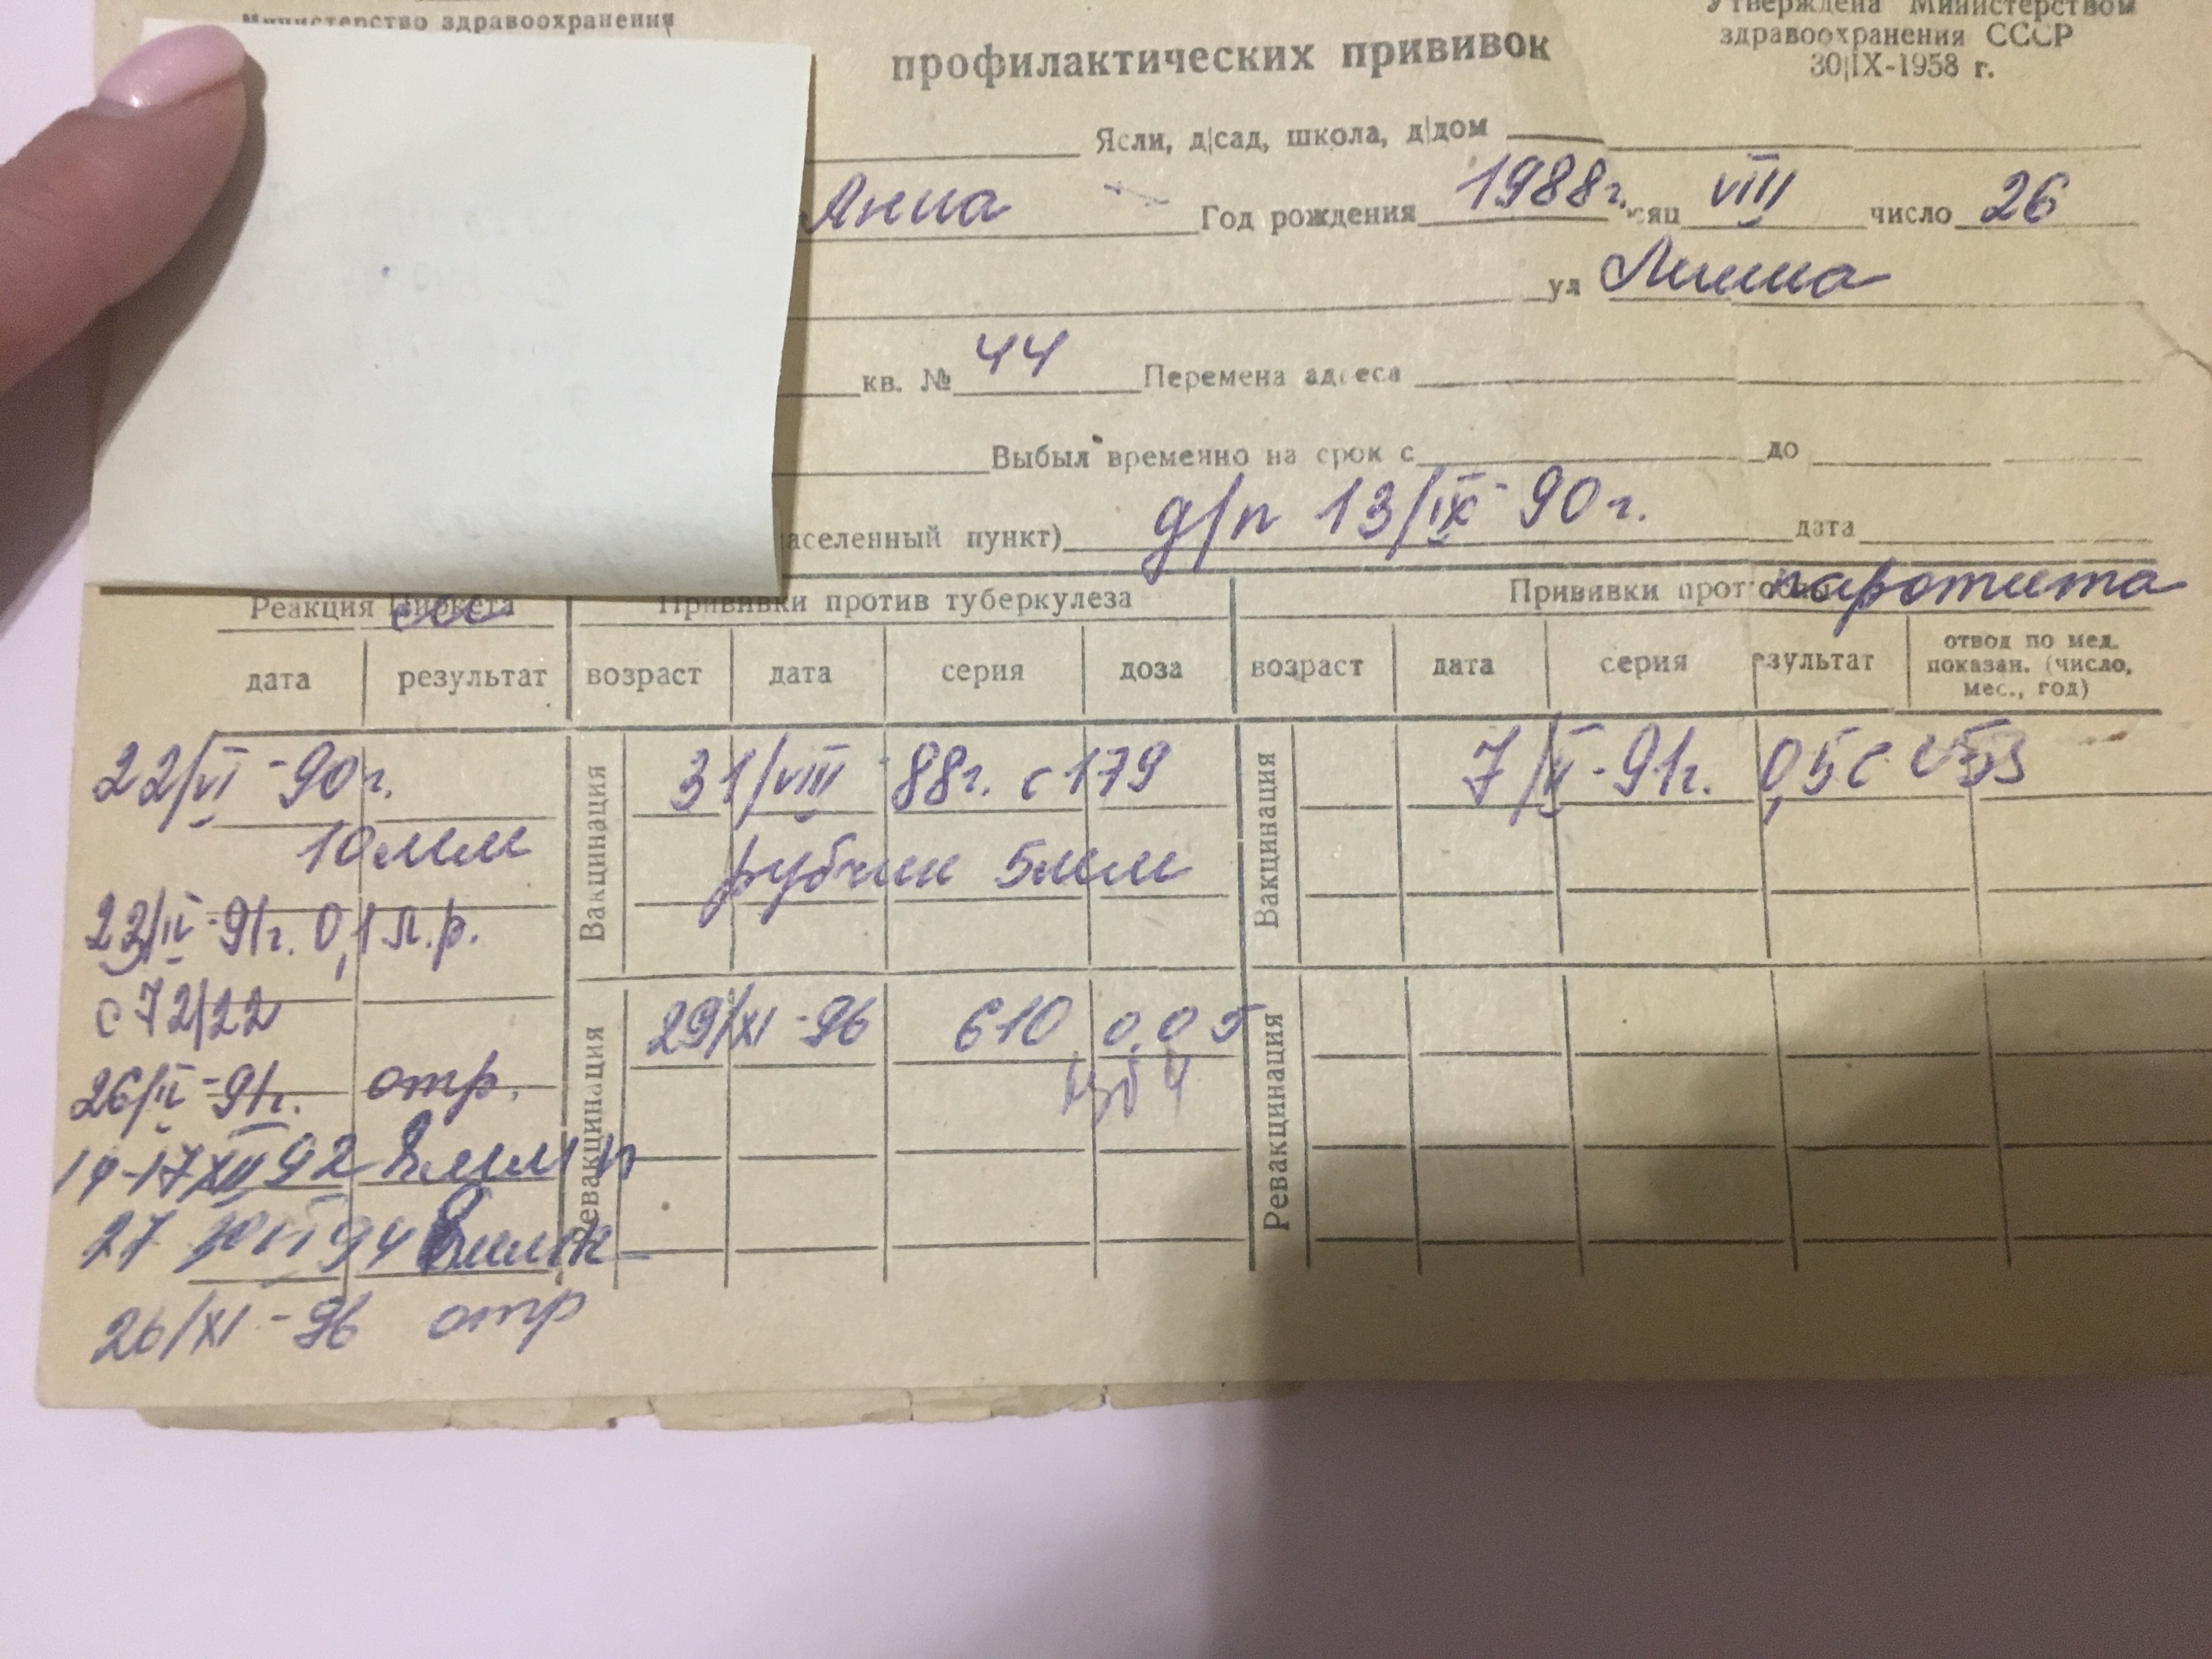 Министерство здравоохранения
Утверждена Министерством
здравоохранения СССР
30|IX-1958 г.
профилактических прививок
Ясли, д|сад, школа, д|дом
Анна Год рождения 1988г. сяц VIII число 26
ул
кв. № 44 Перемена адреса
Выбыл временно на срок с до
аселенный пункт) д/п 13/IX-90г. дата
Реакция Пиркета Прививки против туберкулеза Прививки прот паротита
дата результат возраст дата серия доза возраст дата серия результат отвод по мед.
показан. (число,
мес., год)
Вакцинация
22/VI-90г. 31/VIII 88г. с179
Вакцинация
7/V-91г. 0,5 с
10мм рубчик 5мм
23/IV-91г. 0,1 л.р.
с 72/22
Ревакцинация
29/XI-96 610 0,05
Ревакцинация
26/IV-91г. отр.
14-17 XII 92 8мм п
27 94
26/XI-96 отр